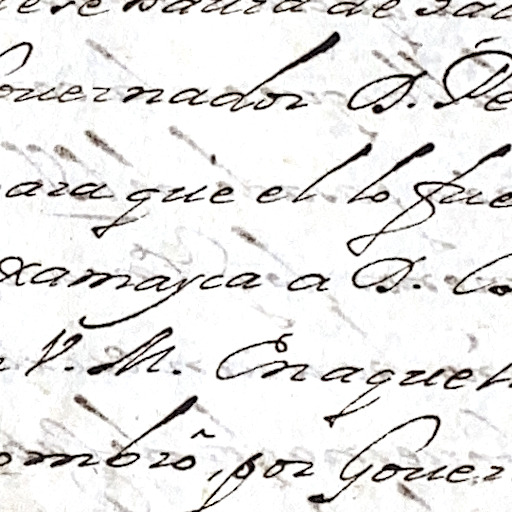 overnador D. Pe
para que el lo fue
xamayca a D. Co
V. M. Enaquel
ombrô, por Gover